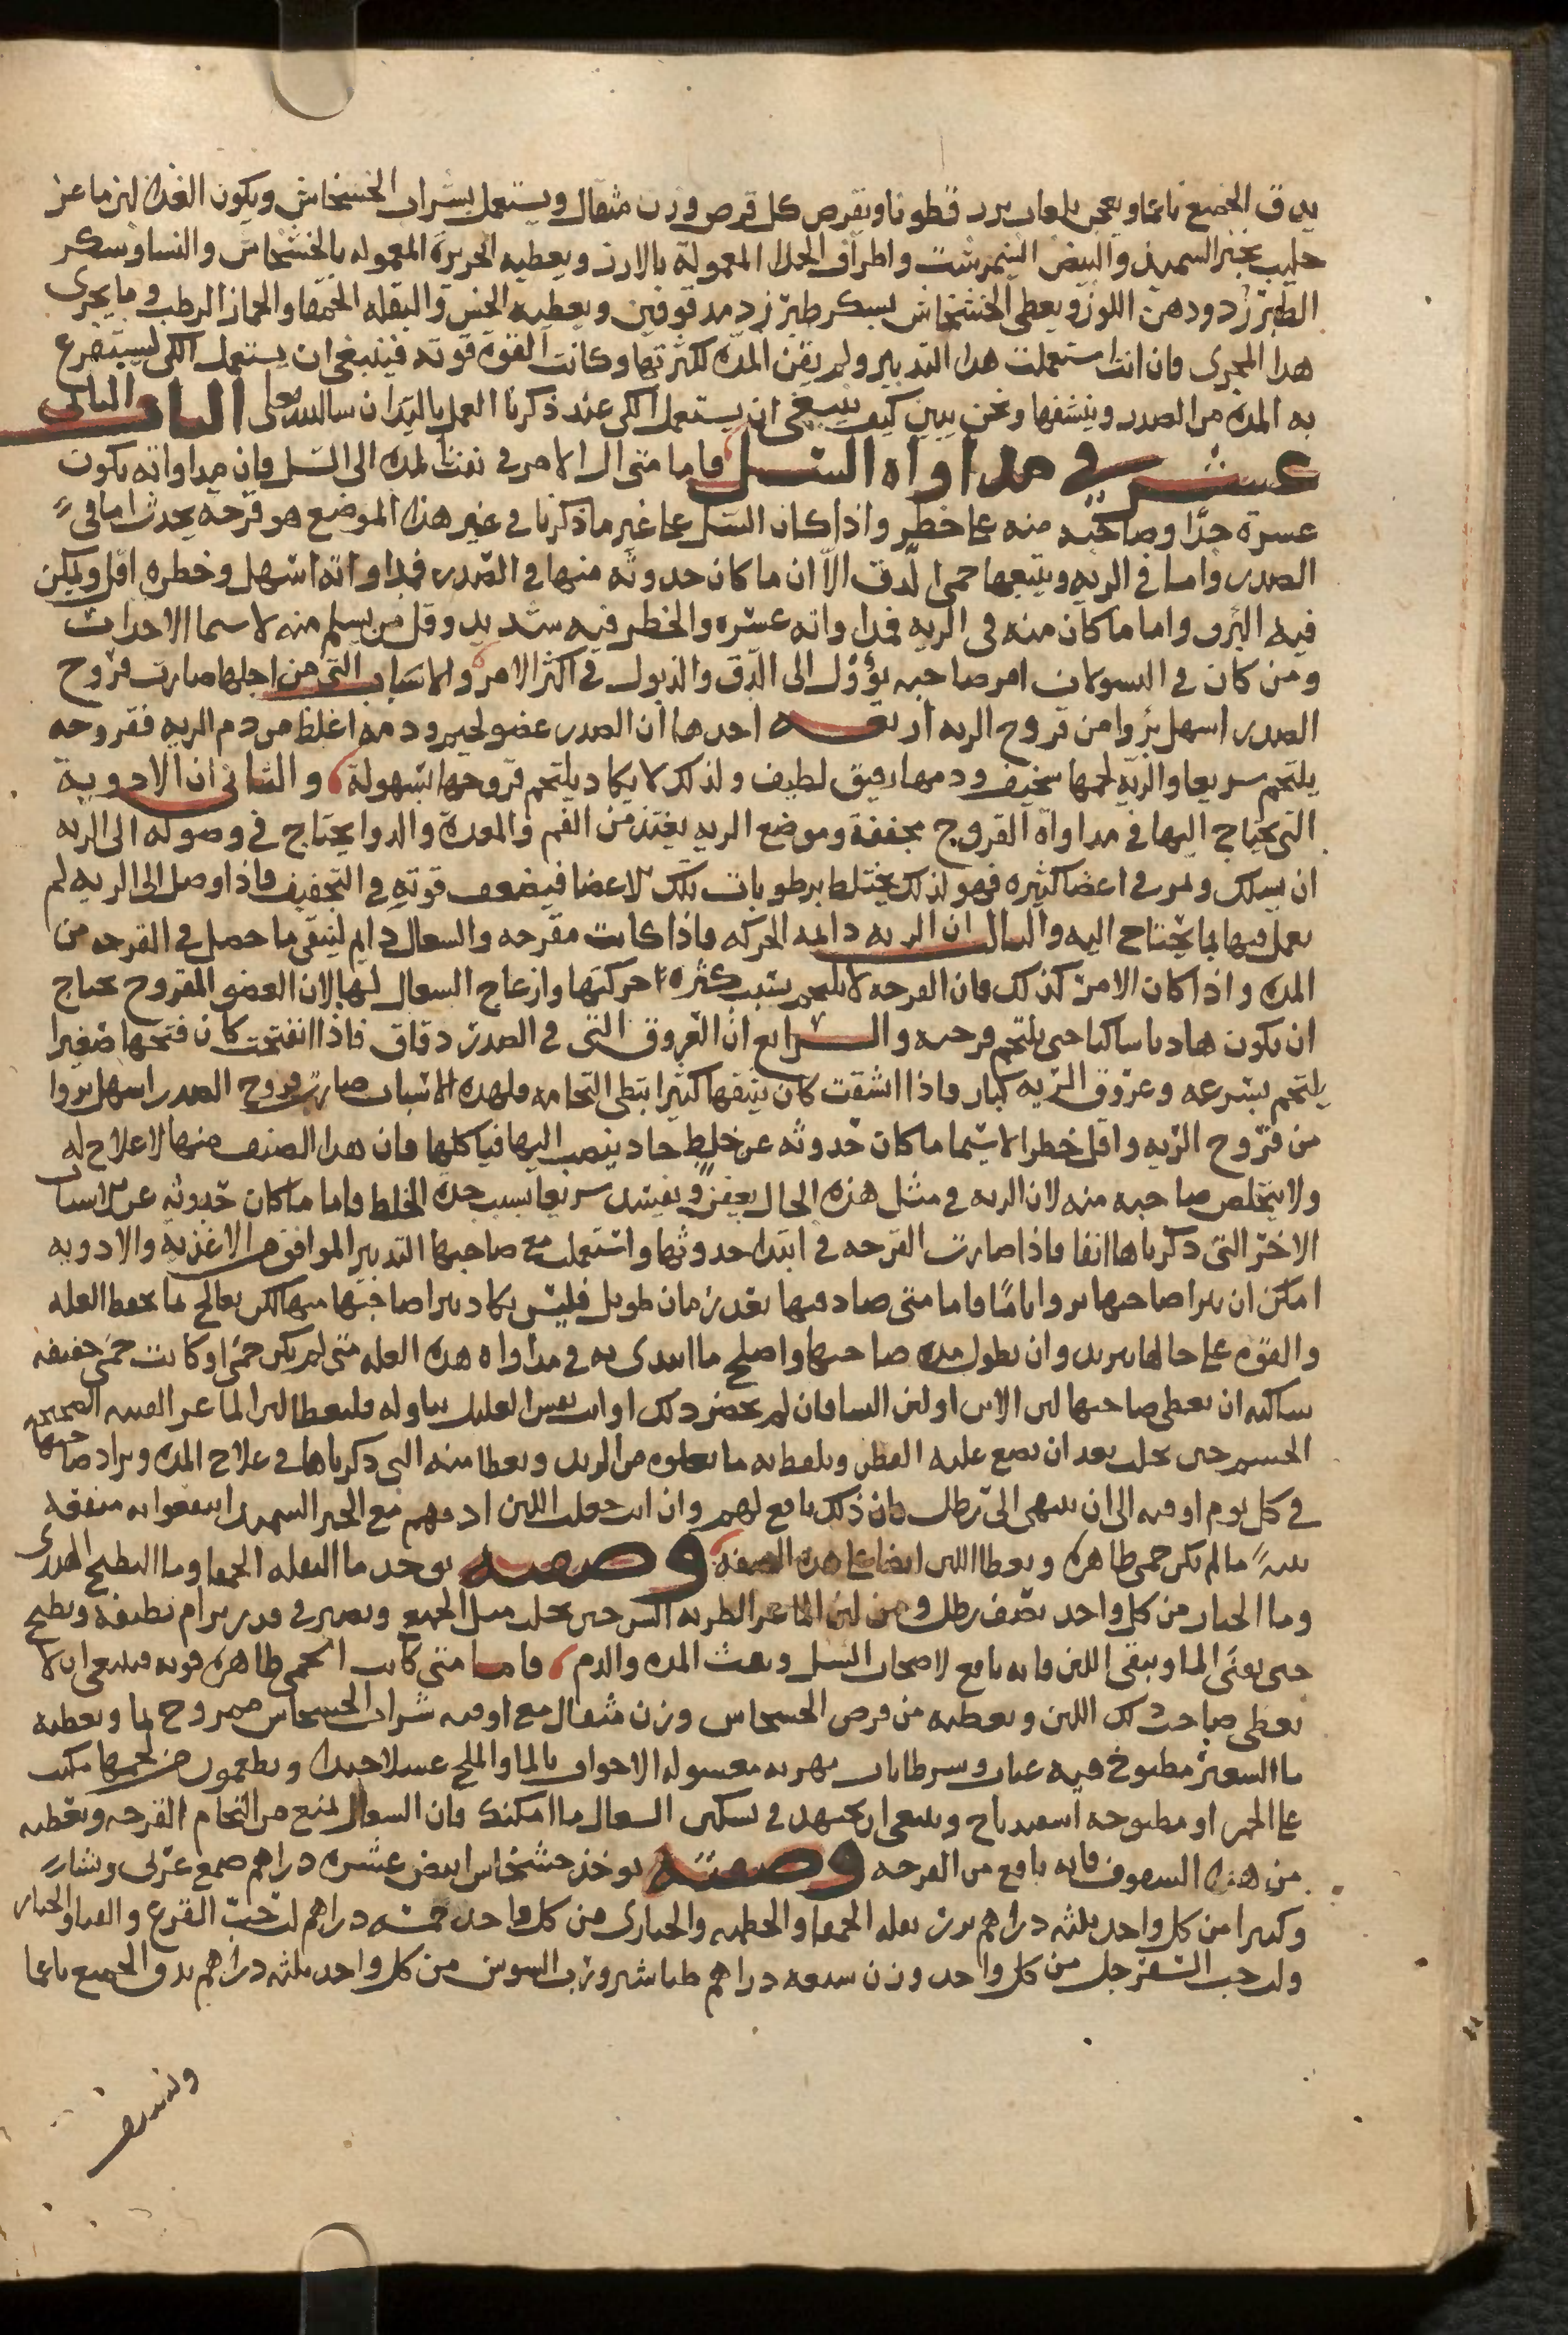 يدق الجميع ناعما ويعجن بلعاب بزر قطونا ويقرص كل قرص وزن مثقال ويستعمل بشراب الخشخاش ويكون الغذا لبن ماعز
حليب بخبز السميد والبيض النيمرشت واطراف الجدا المعمولة بالارز ويعطيه الحريرة المعموله بالخشخاش والنشا وسكر
الطبرزد ودهن اللوز ويعطى الخشخاش بسكر طبرزد مدقوقين ويعطيه الخس والبقله الحمقا والخباز الرطب وما يجرى
هذا المجرى فان انت استعملت هذا التدبير ولم يفن المدة لكثرتها وكانت القوة قويه فينبغى ان يستعمل الكى ليستفرغ
به المدة من الصدر وينشفها ونحن نبين كيف ينبغى ان يستعمل الكى عند ذكرنا العمل باليد ان شا الله تعلى الباب الثانى
عشر في مداواه السل فاما متى ال الامر في نفث المدة الى السل فان مداواته يكون
عسرة جدا وصاحبه منه على خطر واذا كان السل على غير ما ذكرنا في غير هذا الموضع هو قرحه يحدث اما في
الصدر واما في الريه ويتبعها حمى الدق الا ان ما كان حدوثه منها في الصدر فمداواته اسهل وخطره اقل ويمكن
فيه البرو واما ما كان منه في الريه فمداواته عسره والخطر فيه شديد وقل من يسلم منه لاسيما الاحداث
ومن كان في السولان امر صاحبه يؤول الى الدق والذبول في اكثر الامر والاسباب التى من اجلها صارت قروح
الصدر اسهل بروا من قروح الريه اربعه احدها ان الصدر عضو لحمى ودمه اغلظ من دم الريه فقروحه
يلتحم سريعا والريه لحمها سخيف ودمها رقيق لطيف ولذلك لا يكاد يلتحم قروحها بسهولة والثانى ان الادوية
التى يحتاج اليها في مداواة القروح مجففة وموضع الريه يغتذ من الفم والمعدة والدوا يحتاج في وصوله الى الريه
ان يسلك ويمر في اعضا كثيره فهو لذلك يختلط برطوبات تلك الاعضا فيضعف قوته في التجفيف فاذا وصل الى الريه لم
يعمل فيها بما يحتاج اليه والثالث ان الريه دايمه الحركه فاذا كانت مقرحه والسعال دايم لينقى ما حصل في القرحه من
المدة واذا كان الامر كذلك فان القرحه لا يلتحم بسبب كثرة حركتها وازعاج السعال لها لان العضو المقروح يحتاج
ان يكون هاديا ساكنا حتى يلتحم قرحه والرابع ان العروق التى في الصدر دقاق فاذا انفتحت كان فتحها صغيرا
يلتحم بسرعه وعروق الريه كبار واذا انشقت كان شقها كثيرا ابتطى التحامه ولهذه الاسباب صارت قروح الصدر اسهل بروا
من قروح الريه واقل خطرا لا سيما ما كان حدوثه عن خلط حاد ينصب اليها فياكلها فان هذا الصنف منها لا علاج له
ولا يتخلص صاحبه منه لان الريه في مثل هذه الحال يعفن ويفسد سريعا بسبب حدة الخلط فاما ما كان حدوثه عن الاسباب
الاخر التى ذكرناها انفا فاذا صارت القرحه في ابتدا حدوثها واستعمل مع صاحبها التدبير الموافق من الاغذية والادويه
امكن ان يبرا صاحبها بروا تاما فاما متى صادفها بعد زمان طويل فليس يكاد يبرا صاحبها منها لكن يعالج بما يحفظ العله
والقوه على حالها يريد وان يطول مده صاحبها واصلح ما ابتدى به في مداواه هذه العله متى لم يكن حمى او كانت حمى خفيفه
ساكنه ان يعطى صاحبها لبن الاتن او لبن النسا فان لم يحضر ذلك او ابت نفس العليل تناوله فليعطا لبن الماعز الفتيه الصحيحه
الجسم حين يحلب بعد ان يضع عليه القطن ويلقط به ما يعلوه من الزبد ويعطا منه التى ذكرناها في علاج المدة ويزاد صاحبها
في كل يوم اوقيه الى ان ينتهى الى رطل فان ذلك نافع لهم وان انت جعلت اللبن ادمهم مع الخبز السميد انتفعوا به منفعه
بينة ما لم يكن حمى ظاهره ويعطا اللبن ايضا على هذه الصفه وصفته يوخذ ما البقله الحمقا وما البطيخ الهندى
وما الخيار من كل واحد نصف رطل ومن لبن الماعز الطريه السن حين يحلب مثل الجميع ويصير في قدر برام نظيفة ويطبخ
حتى يفنى الما ويبقى اللبن فانه نافع لاصحاب السل ونفث المده والدم فاما متى كانت الحمى ظاهره قويه فينبغى ان لا
يعطى صاحب ذلك اللبن ويعطيه من قرص الخشخاش وزن مثقال مع اوقيه شراب الخشخاش ممزوج بما ويعطيه
ما الشعير مطبوخ فيه عناب وسرطانات نهريه مغسوله الاجواف بالما والملح غسلا جيدا ويطعمون من لحمها مكبب
على الجمر او مطبوخه اسفيدباج وينبغى ان يجتهد في تسكين السعال ما امكنك فان السعال يمنع من التحام القرحه ويعطيه
من هذا السفوف فانه نافع من القرحه وصفته يوخذ خشخاش ابيض عشره دراهم صمغ عربى ونشا
وكثيرا من كل واحد ثلثه دراهم بزر بقله الحمقا والخطميه والخبازى من كل واحد خمسه دراهم لب حب القرع والقثا والخيار
ولب حب السفرجل من كل واحد وزن سبعه دراهم طباشير ورب السوس من كل واحد ثلثه دراهم يدق الجميع ناعما